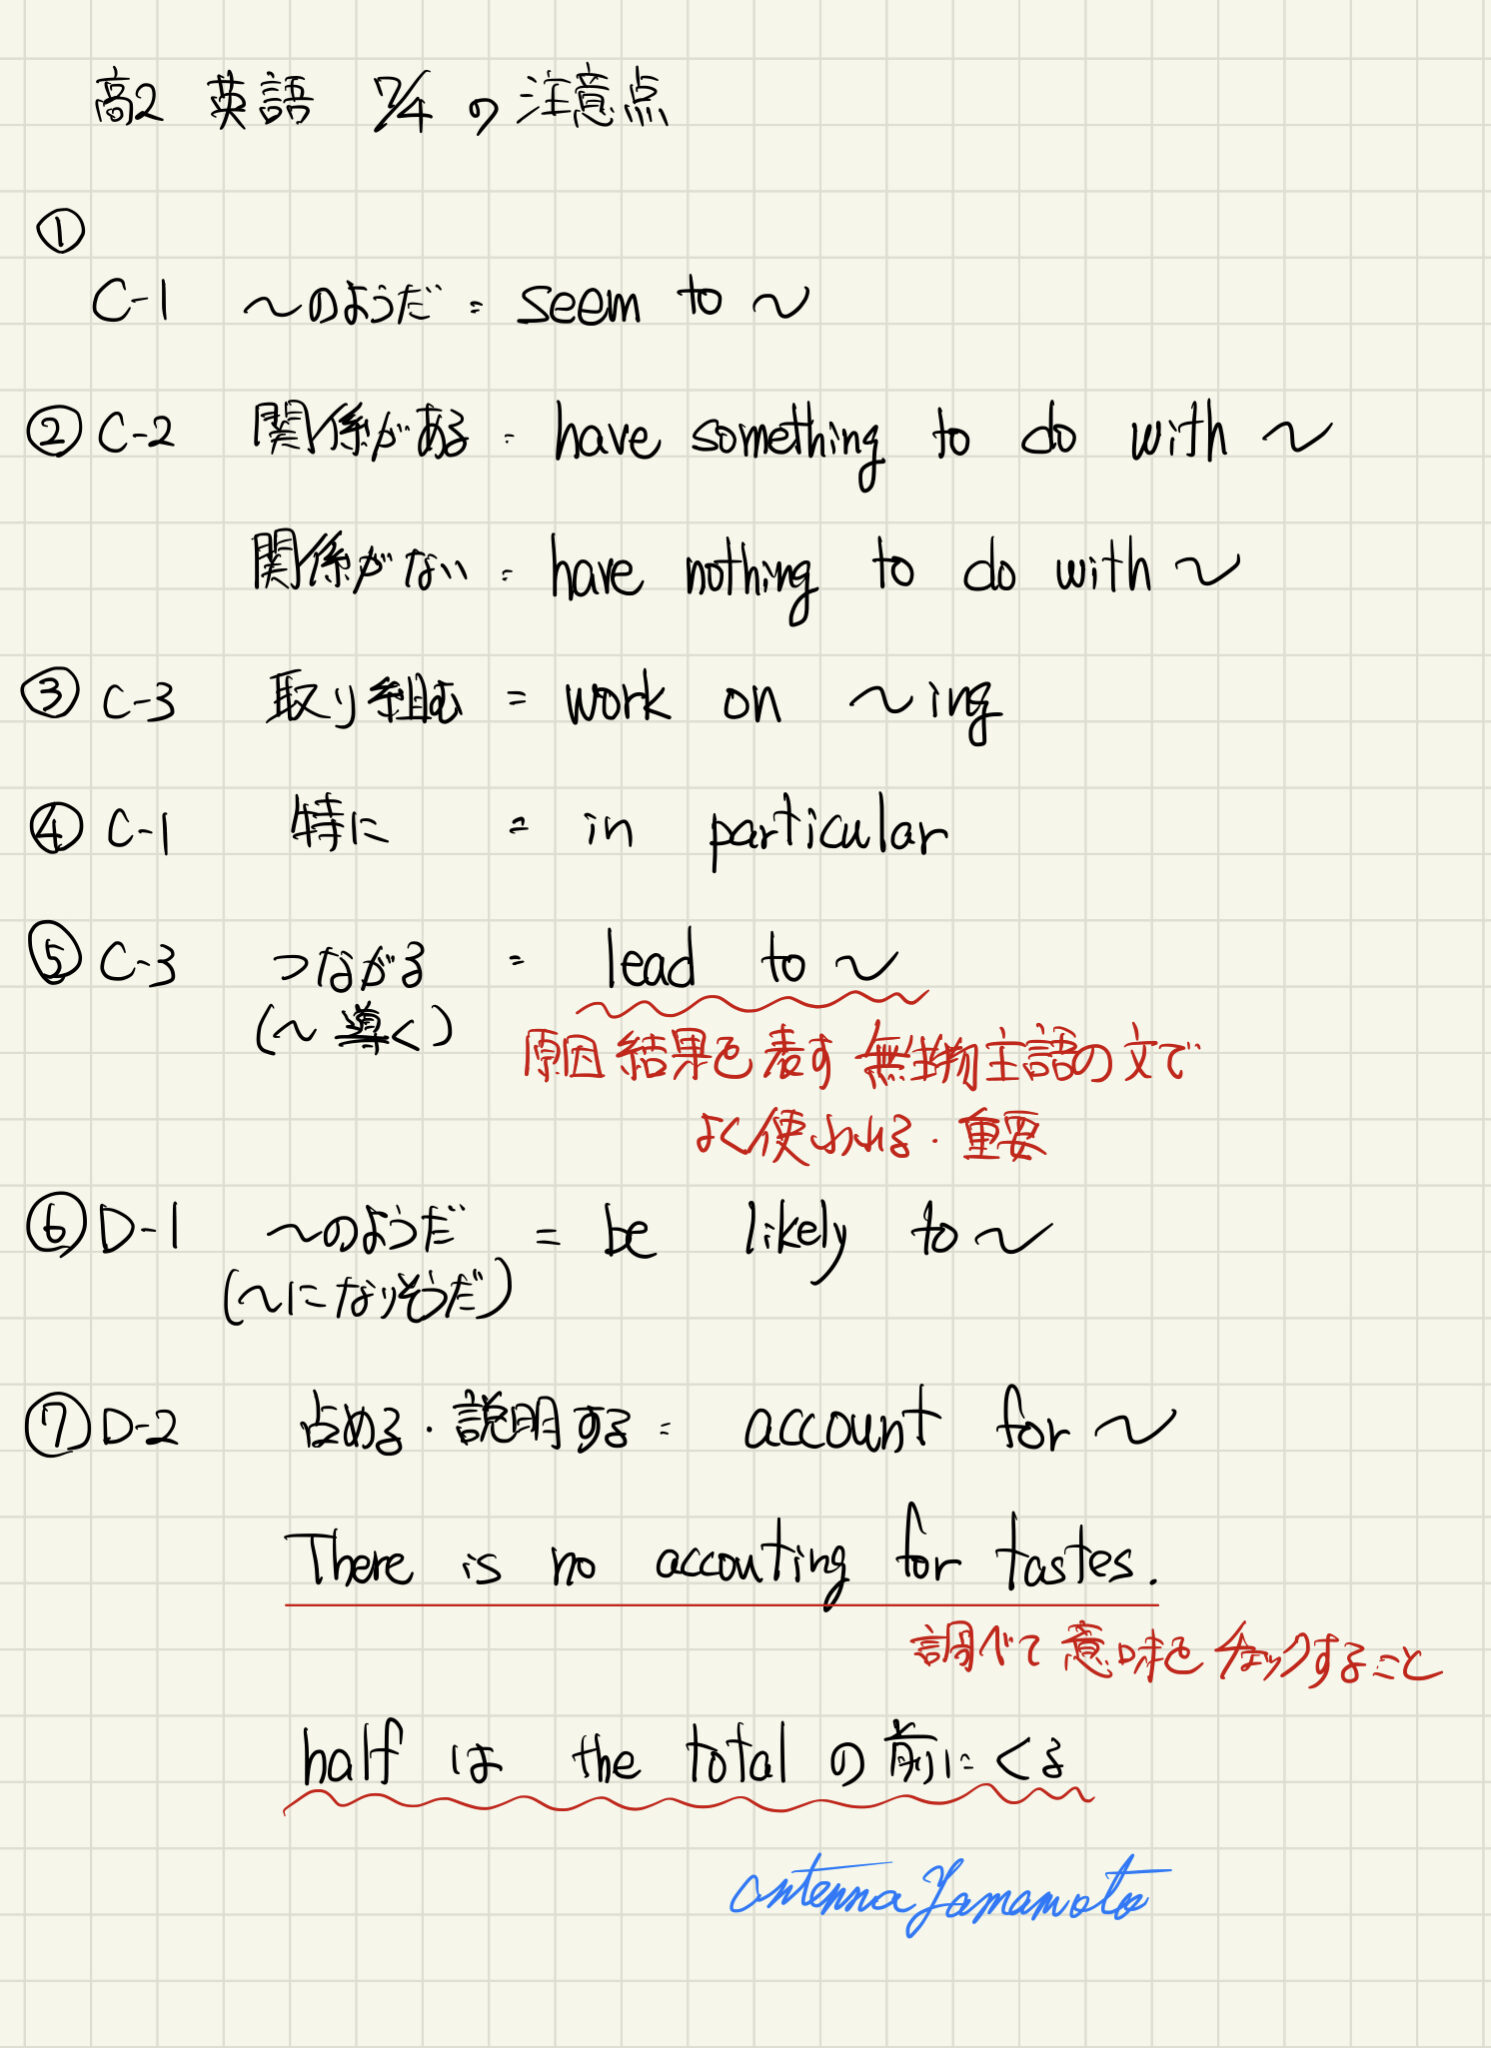 高2 英語 7/4 の 注意点
①
C-1 〜のようだ = seem to 〜
② C-2 関係がある = have something to do with 〜
関係がない = have nothing to do with 〜
③ C-3 取り組む = work on 〜ing
④ C-1 特に = in particular
⑤ C-3 つながる = lead to 〜
(〜 導く)
原因 結果を 表す 無生物主語の文で
よく使われる・重要
⑥ D-1 〜のようだ = be likely to 〜
(〜になりそうだ)
⑦ D-2 占める・説明する = account for 〜
There is no accouting for tastes.
調べて 意味を チェックすること
half は the total の 前にくる
antenna Yamamoto